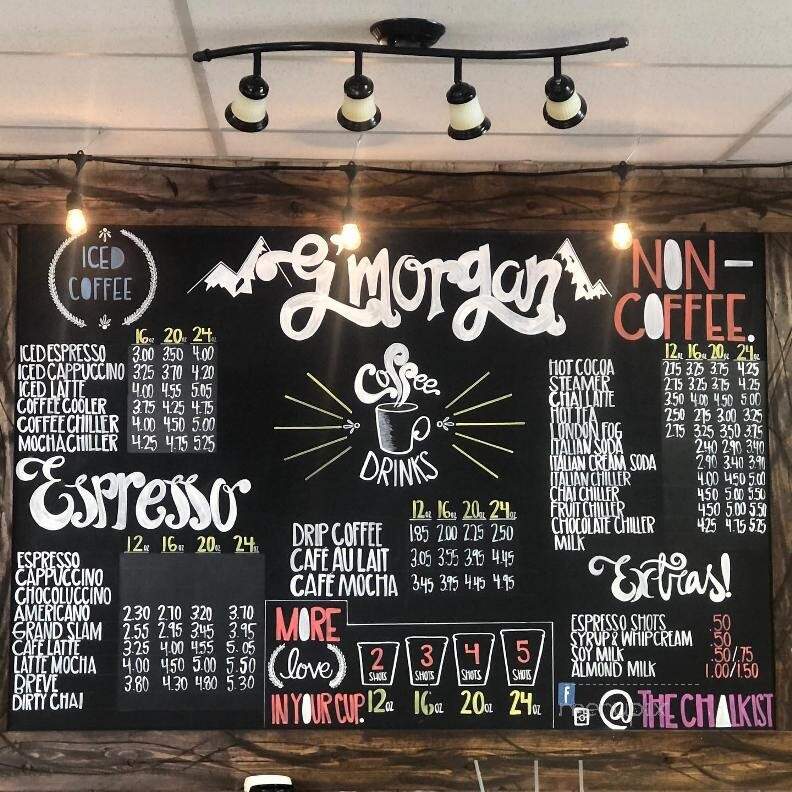 ICED
COFFEE
16oz 20oz 24oz
ICED ESPRESSO 3.00 3.50 4.00
ICED CAPPUCCINO 3.25 3.70 4.20
ICED LATTE 4.00 4.55 5.05
COFFEE COOLER 3.75 4.25 4.75
COFFEE CHILLER 4.00 4.50 5.00
MOCHA CHILLER 4.25 4.75 5.25
Espresso
12oz 16oz 20oz 24oz
ESPRESSO
CAPPUCCINO
CHOCOLUCCINO
AMERICANO 2.30 2.70 3.20 3.70
GRAND SLAM 2.55 2.95 3.45 3.95
CAFE LATTE 3.25 4.00 4.55 5.05
LATTE MOCHA 4.00 4.50 5.00 5.50
BREVE 3.80 4.30 4.80 5.30
DIRTY CHAI
G'morgan
Coffee
DRINKS
12oz 16oz 20oz 24oz
DRIP COFFEE 1.85 2.00 2.25 2.50
CAFE AU LAIT 3.05 3.55 3.95 4.45
CAFE MOCHA 3.45 3.95 4.45 4.95
MORE
love
IN YOUR CUP.
2 SHOTS 3 SHOTS 4 SHOTS 5 SHOTS
12oz 16oz 20oz 24oz
NON-
COFFEE.
12oz 16oz 20oz 24oz
HOT COCOA 2.75 3.25 3.75 4.25
STEAMER 2.75 3.25 3.75 4.25
CHAI LATTE 3.50 4.00 4.50 5.00
HOT TEA 2.50 2.75 3.00 3.25
LONDON FOG 2.75 3.25 3.50 3.75
ITALIAN SODA 2.40 2.90 3.40
ITALIAN CREAM SODA 2.90 3.40 3.90
ITALIAN CHILLER 4.00 4.50 5.00
CHAI CHILLER 4.50 5.00 5.50
FRUIT CHILLER 4.50 5.00 5.50
CHOCOLATE CHILLER 4.25 4.75 5.25
MILK
Extras!
ESPRESSO SHOTS .50
SYRUP & WHIP CREAM .50
SOY MILK .50/.75
ALMOND MILK 1.00/1.50
f
@THE CHALKIST